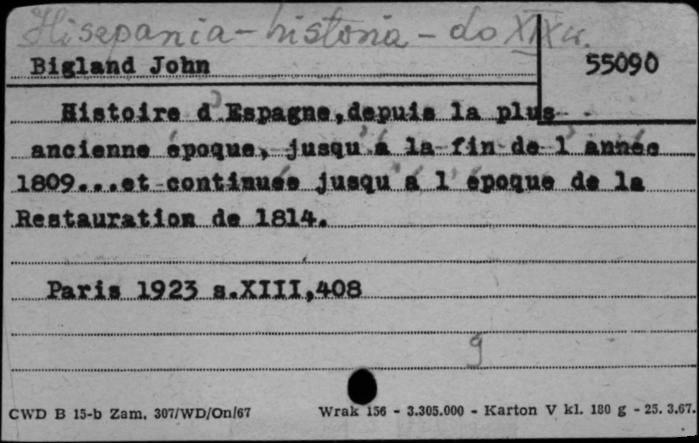 Hiszpania - historia - do XIX w.
Bigland John
55090
Histoire d'Espagne, depuis la plus
ancienne époque, jusqu'á la fin de l'année
1809...et continuée jusqu'á l'époque de la
Restauration de 1814.
Paris 1923 s.XIII,408
g
CWD B 15-b Zam. 307/WD/On/67
Wrak 156 - 3.305.000 - Karton V kl. 180 g - 25. 3.67.